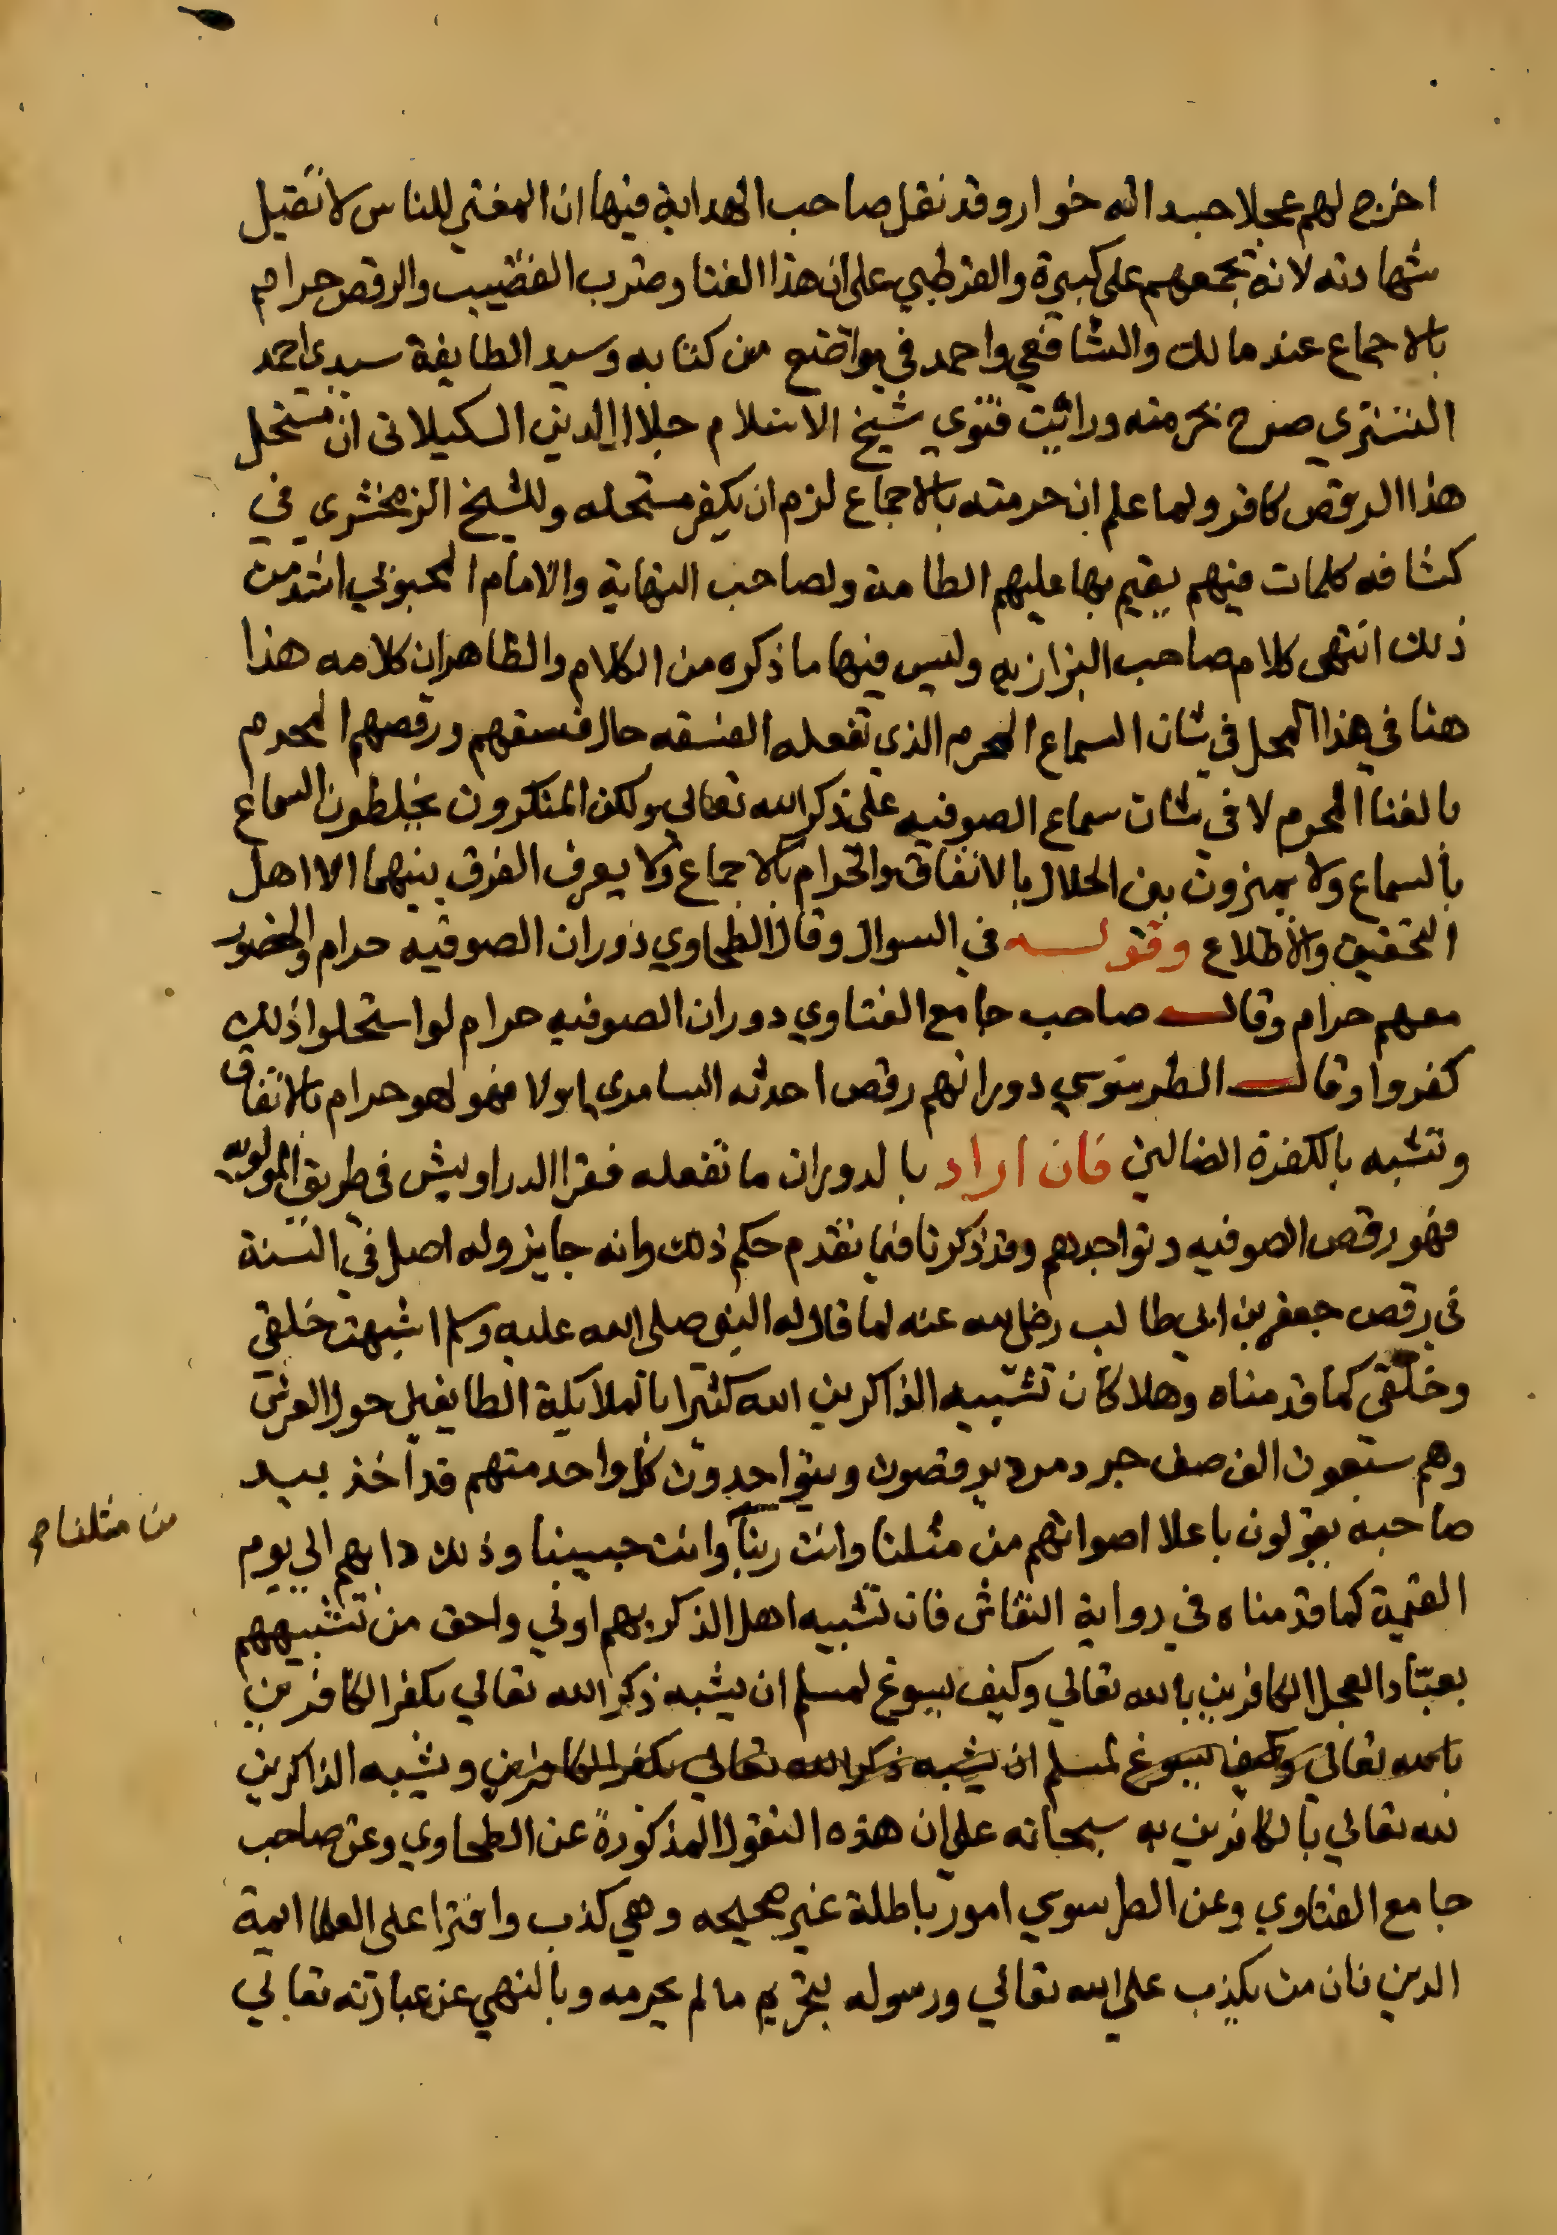 اخرج لهم عجلا جسدا له خوار وقد نقل صاحب الهداية فيها ان المغني للناس لا تقبل
شهادته لانه يجمعهم على كبيرة والقرطبي على ان هذا الغنا وضرب القضيب والرقص حرام
بالاجماع عند مالك والشافعي واحمد في مواضع من كتابه وسيد الطايفة سيدي احمد
النستري صرح بحرمته ورائيت فتوي شيخ الاسلام جلال الدين الكيلاني ان مستحل
هذا الرقص كافر ولما علم ان حرمته بالاجماع لزم ان يكفر مستحله وللشيخ الزمخشري في
كشافه كلمات فيهم يقيم بها عليهم الطامة ولصاحب النهاية والامام المحبوبي اشد من
ذلك انتهى كلام صاحب البزازيه وليس فيها ما ذكره من الكلام والظاهر ان كلامه هذا
هنا في هذا المحل في شان السماع المحرم الذي تفعله الفسقه حال فسقهم ورقصهم المحرم
بالغنا المحرم لا في شان سماع الصوفيه على ذكر الله تعالى ولكن المنكرون يخلطون السماع
بالسماع ولا يميزون بين الحلال بالاتفاق والحرام بالاجماع ولا يعرف الفرق بينهما الا اهل
التحقيق والاطلاع وقوله في السوال وقال الطحاوي دوران الصوفيه حرام والحضور
معهم حرام وقال صاحب جامع الفتاوي دوران الصوفيه حرام لو استحلوا ذلك
كفروا وقال الطرسوسي دورانهم رقص احدثه السامري اولا فهو لهو حرام بالاتفاق
وتشبه بالكفرة الضالين فان اراد بالدوران ما تفعله فقرا الدراويش في طريق المولويه
فهو رقص الصوفيه وتواجدهم وقد ذكرنا فيما تقدم حكم ذلك وانه جايز وله اصل في السنة
في رقص جعفر بن ابي طالب رضي الله عنه لما قال له النبي صلى الله عليه وسلم اشبهت خلقي
وخلقي كما قدمناه وهلا كان تشبيه الذاكرين الله كثيرا بالملايكة الطايفين حول العرش
وهم سبعون الف صف جرد مرد يرقصون ويتواجدون كل واحد منهم قد اخذ بيد
صاحبه يقولون باعلا اصواتهم من مثلنا وانت ربنا وانت حبيبنا وذلك دابهم الى يوم
من مثلنا
القيمة كما قدمناه في رواية النقاش فان تشبيه اهل الذكر بهم اولي واحق من تشبيههم
بعبّاد العجل الكافرين بالله تعالي وكيف يسوغ لمسلم ان يشبه ذكر الله تعالي بكفر الكافرين
بالله تعالي وكيف يسوغ لمسلم ان يشبه ذكر الله تعالي بكفر الكافرين ويشبه الذاكرين
لله تعالي بالكافرين به سبحانه علي ان هذه النقول المذكورة عن الطحاوي وعن صاحب
جامع الفتاوي وعن الطرسوسي امور باطلة غير صحيحه وهي كذب وافترا على العلما ايمة
الدين فان من يكذب علي الله تعالي ورسوله بتحريم ما لم يحرمه وبالنهي عن عبادته تعالي